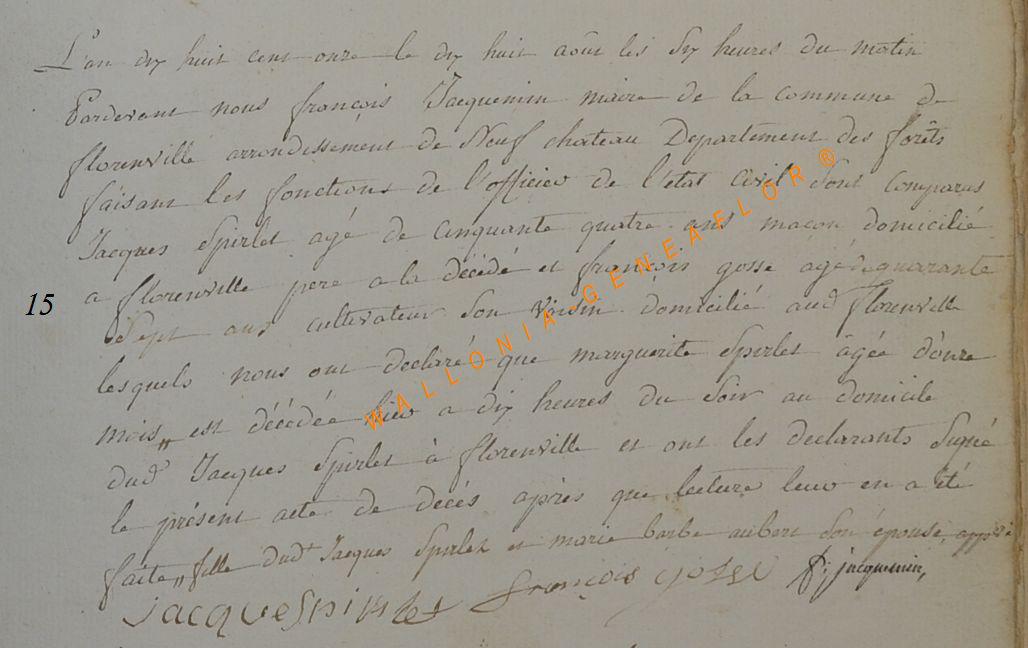 L'an dix huit cent onze le dix huit août les dix heures du matin
Pardevant nous françois Jacquemin maire de la commune de
florenville arrondissement de Neuf chateau Departement des forêts
faisant les fonctions de l'officier de l'état civil sont comparus
Jacques Spirlet agé de cinquante quatre ans macon domicilié
a florenville pere a la décédé et françois gosse agé de quarante
Sept ans cultivateur son voisin domicilié aud florenville
lesquels nous ont declaré que marguerite Spirlet âgée d'onze
mois,, est décédée hier a dix heures du soir au domicile
dud Jacques Spirlet à florenville et ont les declarants signé
le présent acte de decés après que lecture leur en a été
faite,, fille dud Jacques Spirlet et marie barbe aubert son épouse,
jacque Spirlet françois gosse f: jacquemin,
15
WALLONIA-GENEAFLOR®